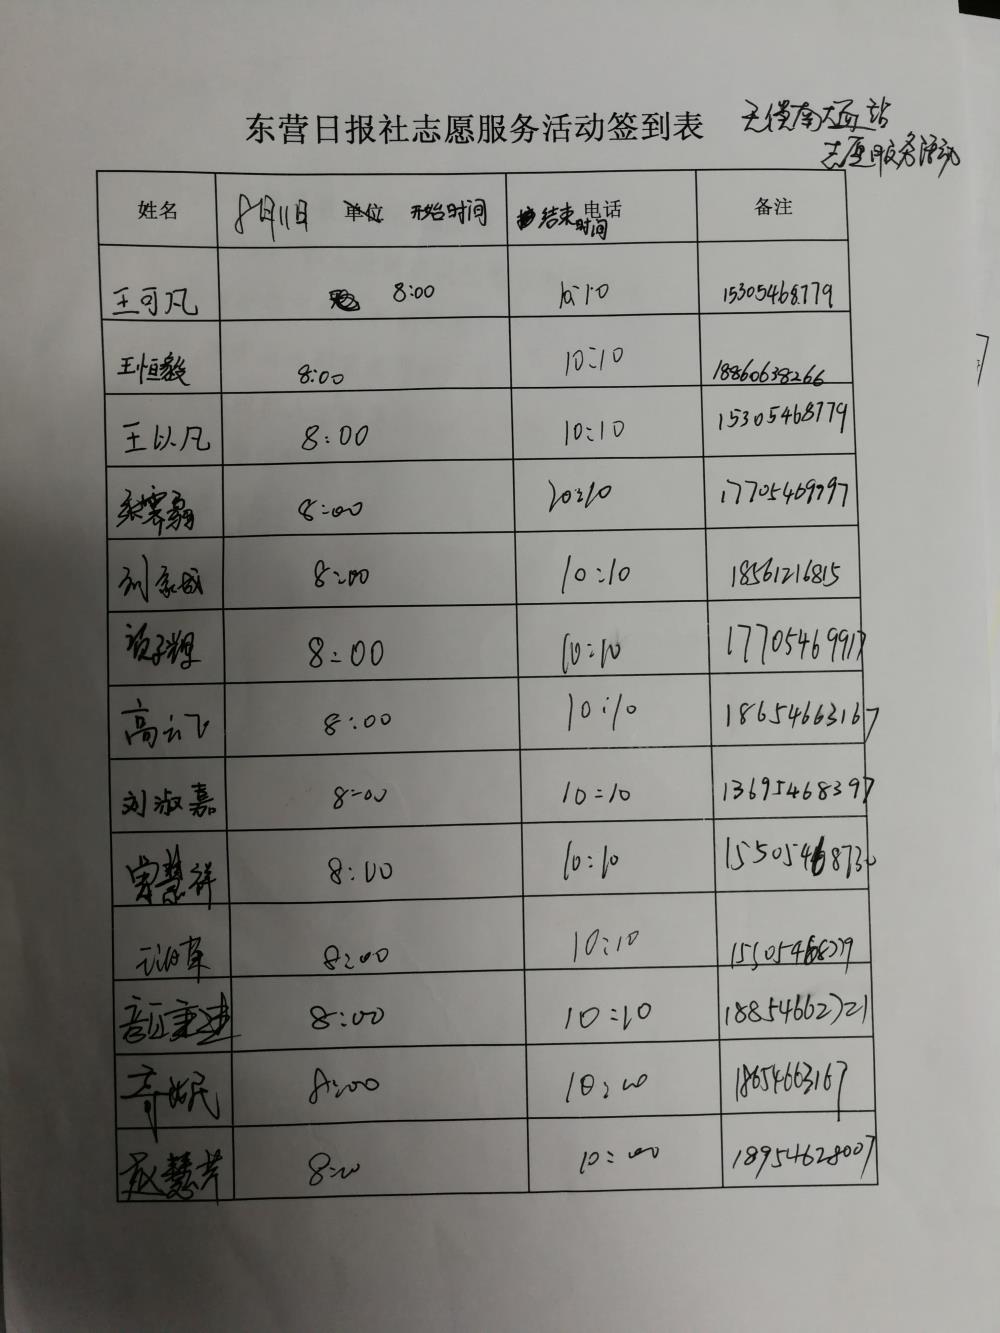 东营日报社志愿服务活动签到表
志愿服务活动
姓名 8月11日 单位 开始时间 结束时间 电话 备注
王可凡 8:00 10:10 15305468779
王恒毅 8:00 10:10 18860638266
王以凡 8:00 10:10 15305468779
8:00 17705469797
8:00 10:10 18561216815
8:00 10:10 17705469917
高云飞 8:00 10:10 18654663167
刘淑嘉 8:00 10:10 13695468397
8:00 10:10
8:00 10:10
8:00 10:10 18854662721
8:00 18654663167
赵慧芹 18954628007